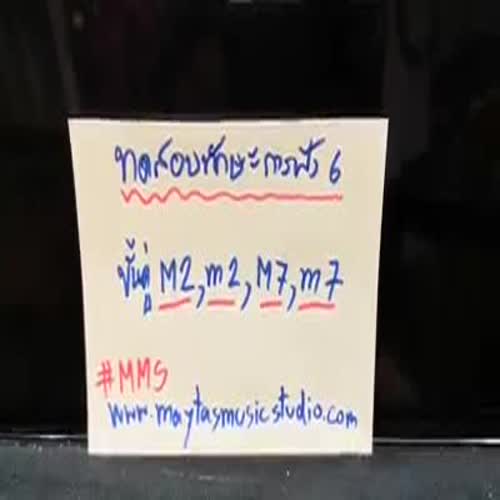 ทดสอบทักษะการฟัง 6
ขั้นคู่ M2, m2, M7, m7
#MMS
www.maytasmusicstudio.com